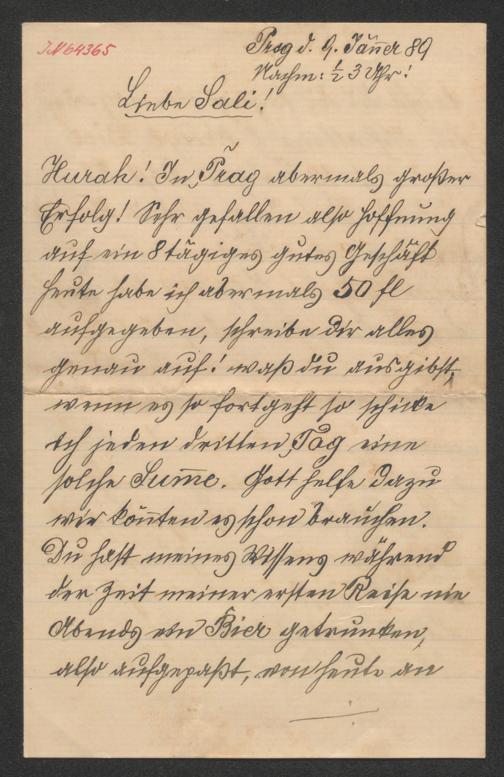 I.N 64365
Prag d. 9. Jäner 89
Nachm: ½ 3 Uhr!
Liebe Sali!
Hurah! In Prag abermals großer
Erfolg! Sehr gefallen also Hoffnung
auf ein 8tägiges gutes Geschäft
heute habe ich abermals 50 fl
aufgegeben, schreibe dir alles
genau auf! waß du ausgibst,
wenn es so fortgeht so schicke
ich jeden dritten Tag eine
solche Sum̅e. Gott helfe dazu
wir kön̅ten es schon brauchen.
Du hast meines Wissens während
der Zeit meiner ersten Reise nie
Abends ein Bier getrunken,
also aufgepaßt, von heute an